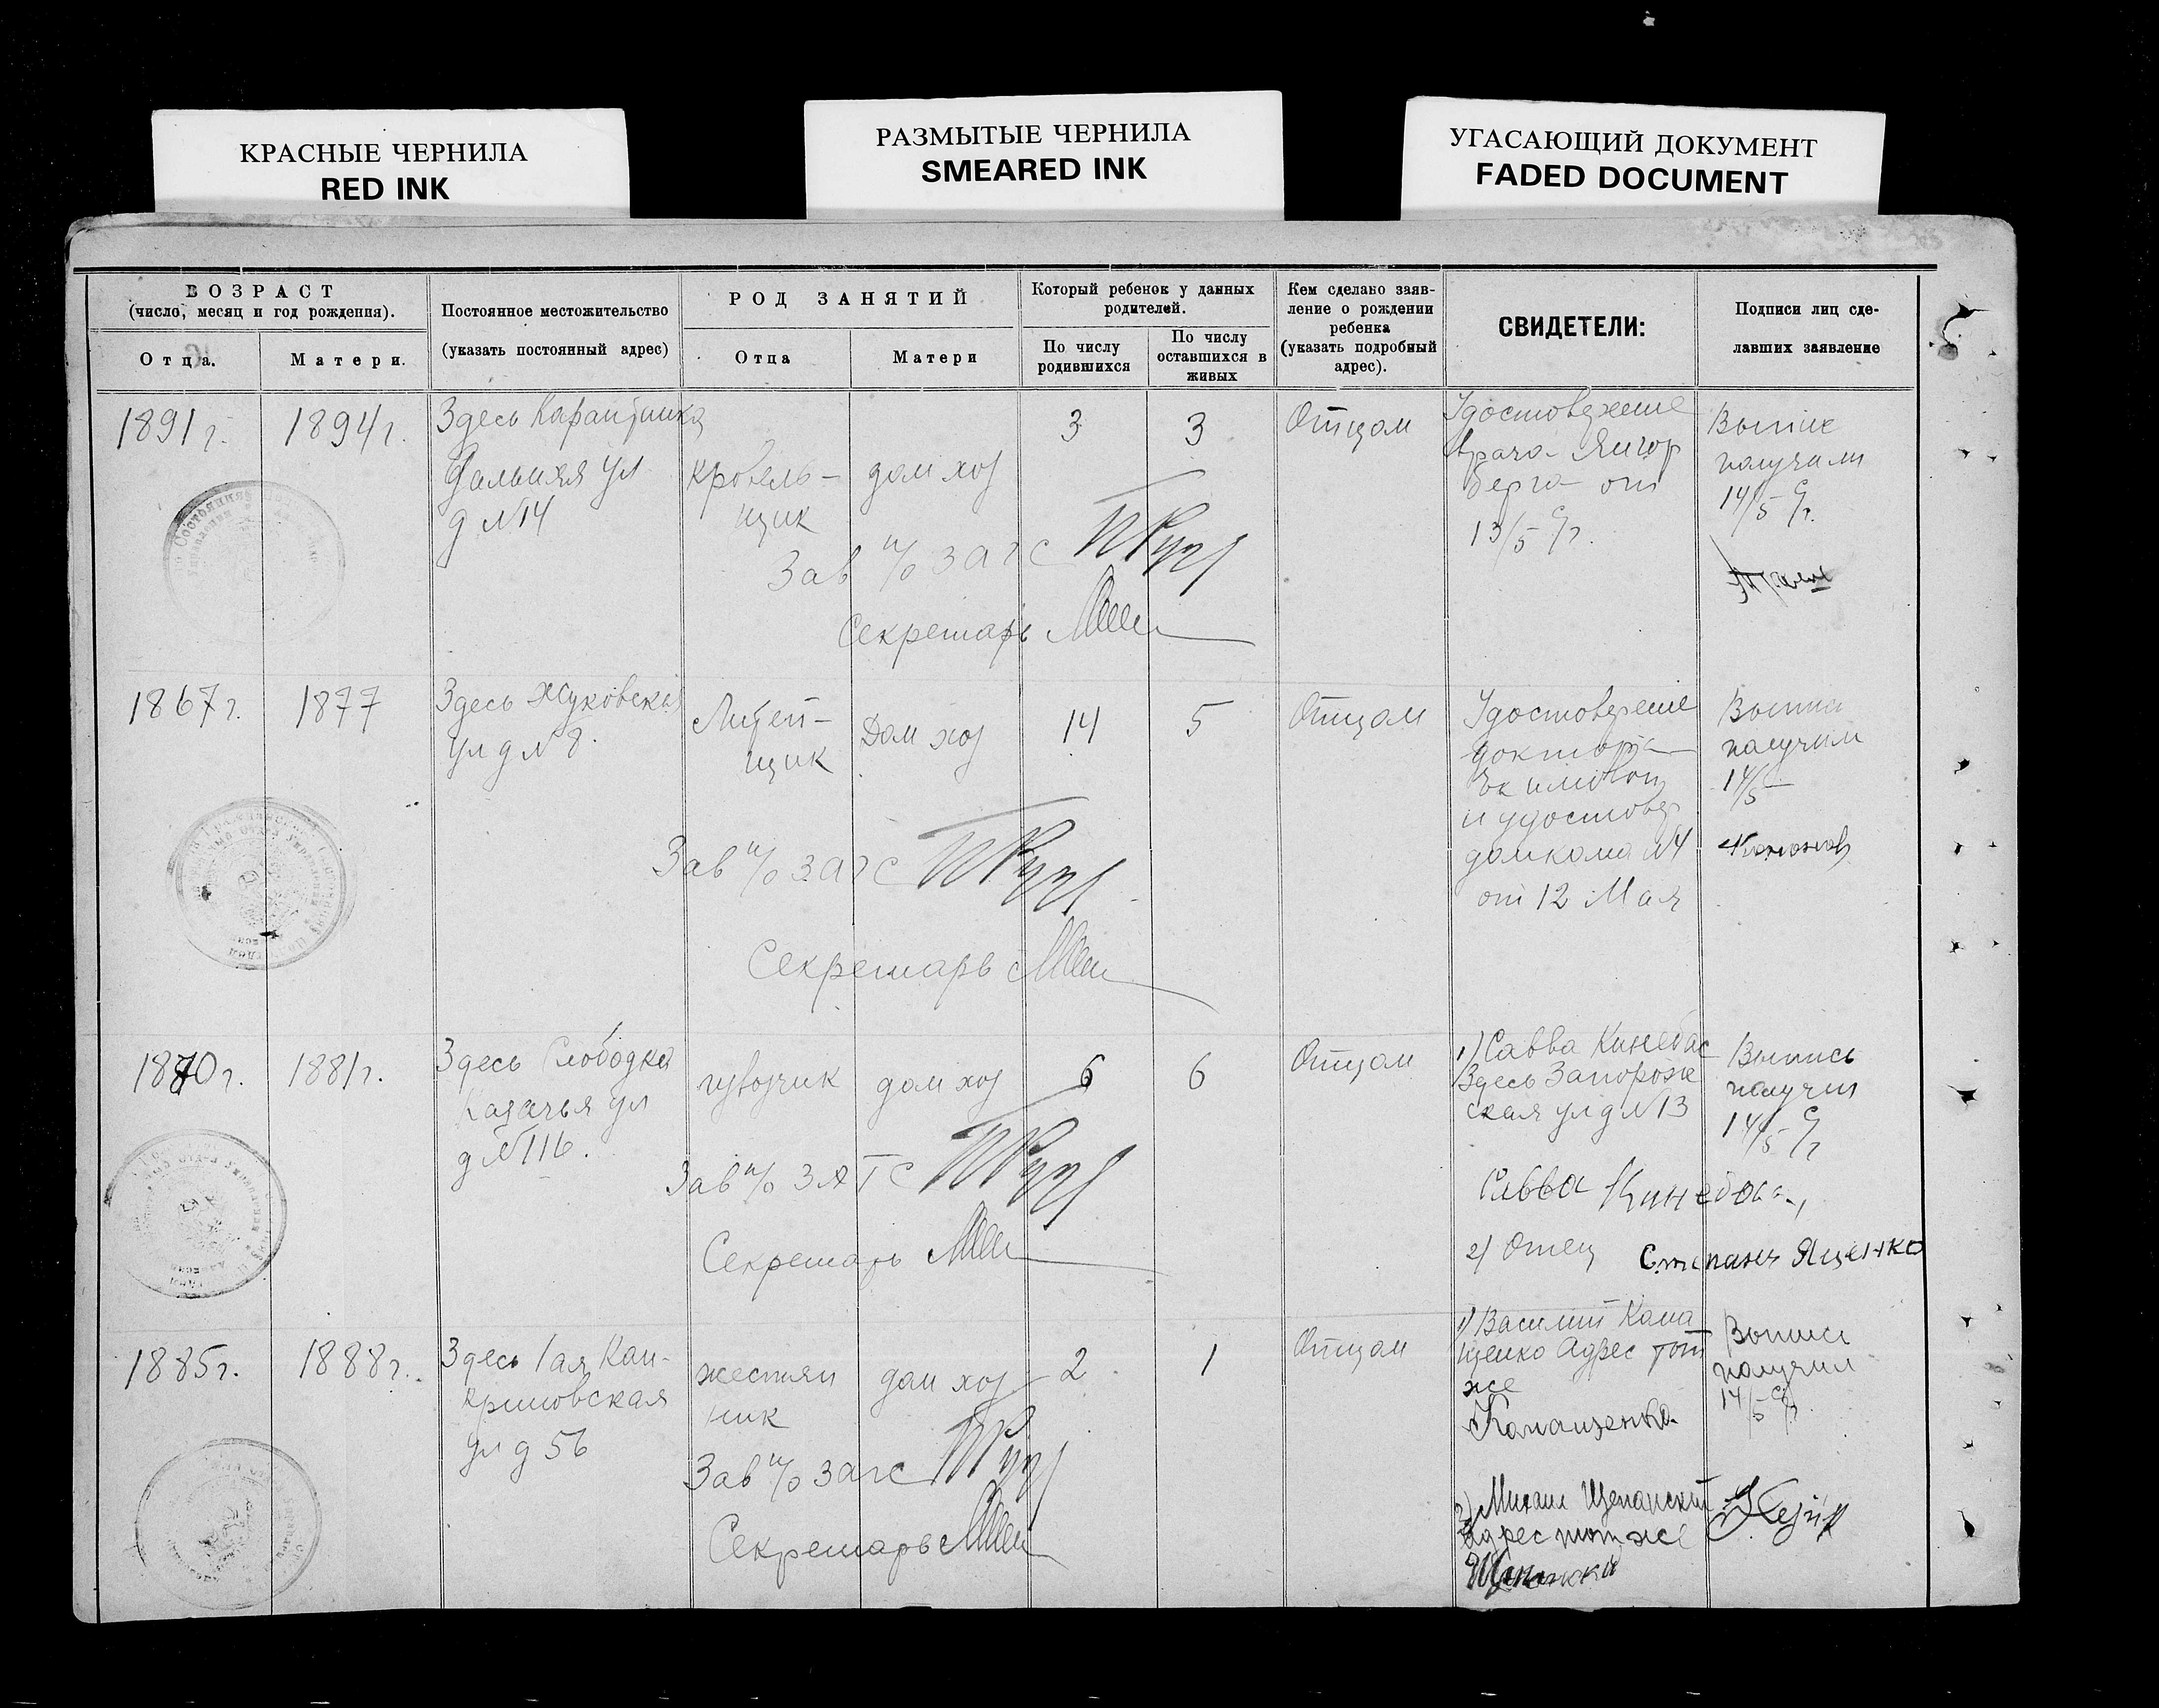 КРАСНЫЕ ЧЕРНИЛА
RED INK
РАЗМЫТЫЕ ЧЕРНИЛА
SMEARED INK
УГАСАЮЩИЙ ДОКУМЕНТ
FADED DOCUMENT
ВОЗРАСТ
(число, месяц и год рождения).
Отца.
Матери.
Постоянное местожительство
(указать постоянный адрес)
РОД ЗАНЯТИЙ
Отца
Матери
Который ребенок у данных
родителей.
По числу
родившихся
По числу
оставшихся в
живых
Кем сделано заяв-
ление о рождении
ребенка
(указать подробный
адрес).
СВИДЕТЕЛИ:
Подписи лиц сде-
лавших заявление
1891 г.
1894 г.
Здесь
Дальняя ул
д №14
кровель-
щик
дом хоз
3
3
Отцом
Удостоверение
врача
берга от
13/5 с/г.
получили
14/5 с/г.
Зав п/о загс
Секретарь
1867 г.
1877
Здесь Жуковская
ул д № 8.
Литей-
щик
Дом хоз
14
5
Отцом
Удостоверение
доктора
и удостовер
домкома №4
от 12 Мая
получил
14/5
Зав п/о загс
Секретарь
1870 г.
1881 г.
Здесь Слободка
Казачья ул
д №116.
извозчик
дом хоз
6
6
Отцом
1) Савва
Здесь Запорож
ская ул д №13
Савва
2) Отец Степанъ Яценко
Выпись
получил
14/5 с/г
Зав п/о ЗАГС
Секретарь
1885 г.
1888 г.
Здесь 1ая Кан-
криновская
ул д 56
жестян
ник
дом хоз
2
1
Отцом
1) Василий Кана
щенко Адрес тот
же
Канащенко
2) Михаил Щепанский
адрес тот же
получил
14/5 с/г.
Зав п/о загс
Секретарь